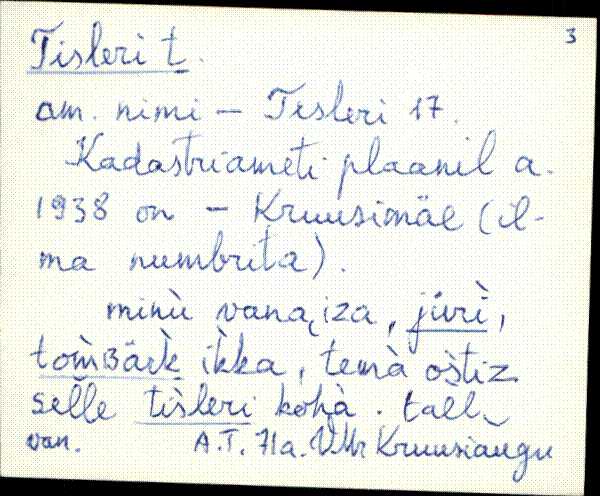 3
Tisleri t.
am. nimi – Tisleri 17.
Kadastriameti plaanil a.
1938 on – Kruusimäe (il-
ma numbrita).
minù vana iza, jüri,
tom̀ʙäɾk ìkka, temà oštiz
selle tìsleri kohà. tall
van. A.T. 71a. VMr Kruusiaugu